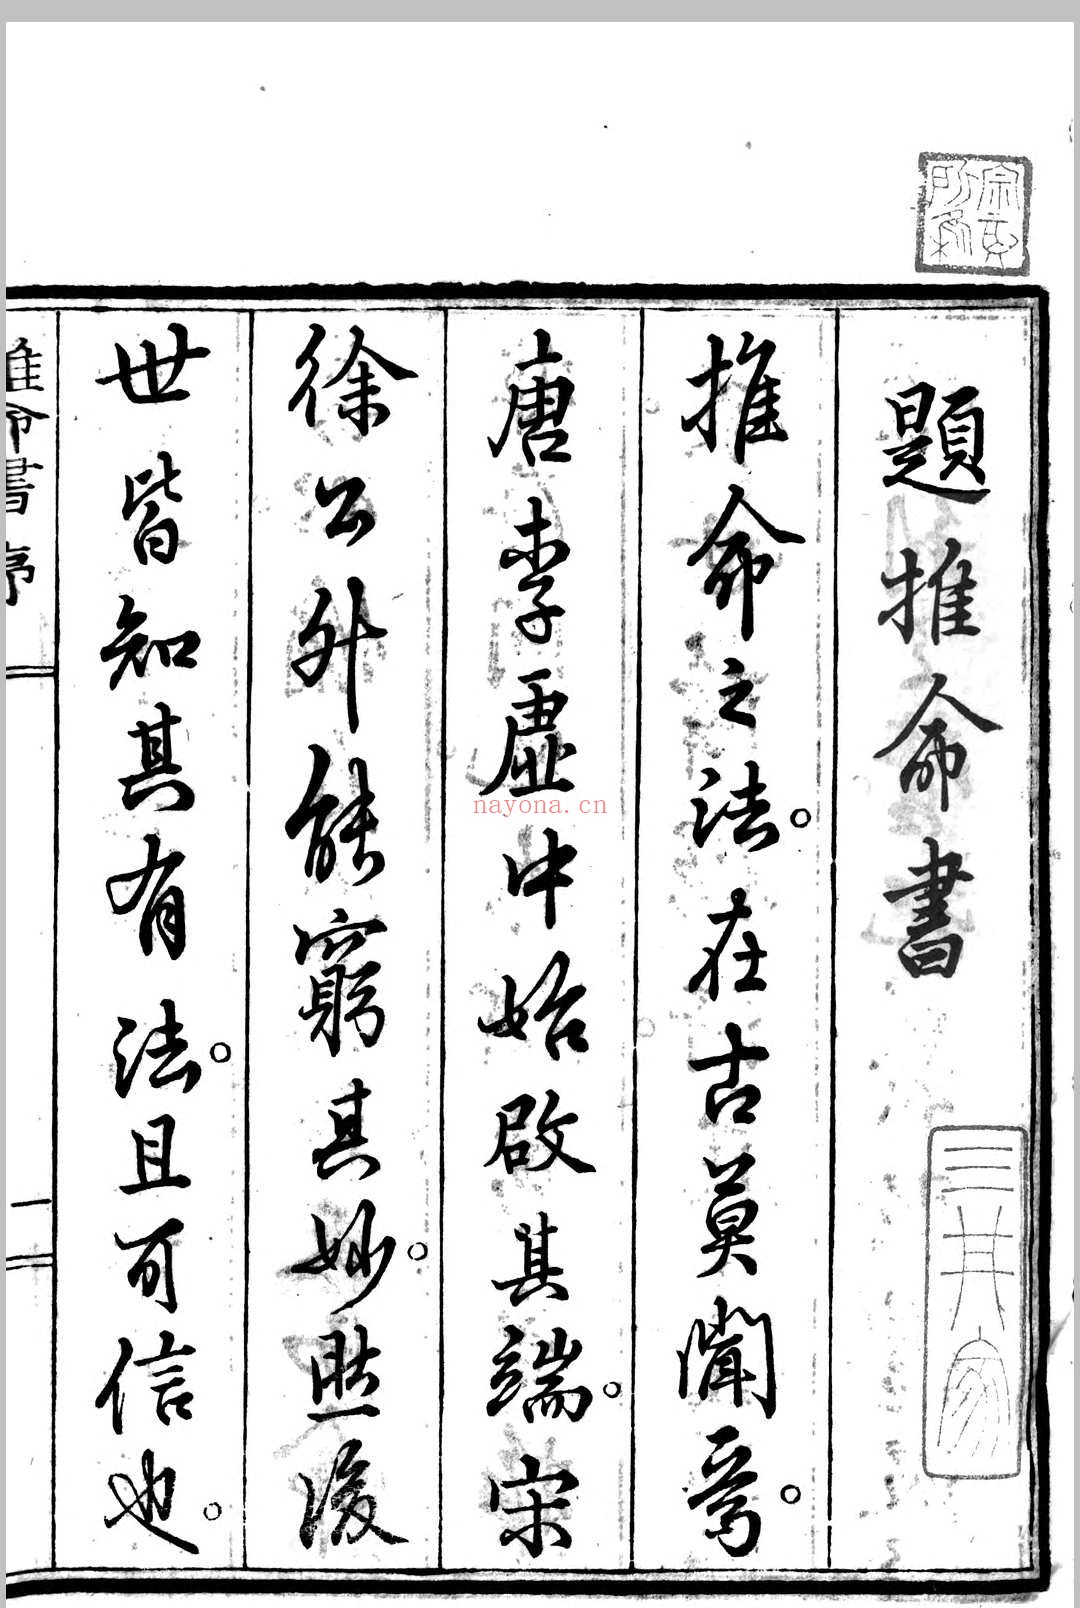 題推命書
推命之法。在古莫聞焉。
唐李虛中始啟其端。宋
徐公外能窮其妙。然後
世皆知其有法。且可信也。
推命書序
一
三井家
nayona.cn